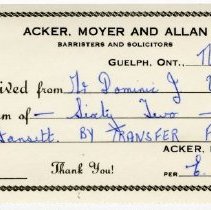 ACKER, MOYER AND ALLAN
BARRISTERS AND SOLICITORS
GUELPH, ONT.,
ived from Mr Dominic J
m of — Sixty Two —
BY TRANSFER F
ACKER,
Thank You!
PER